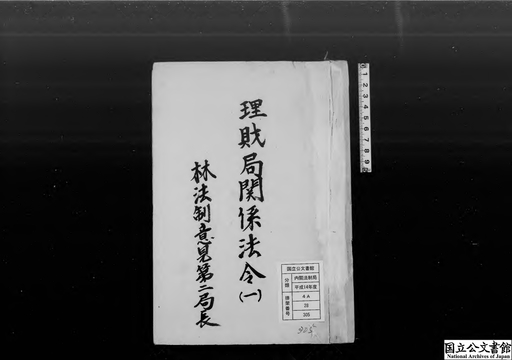 理財局関係法令(一)
林法制意見第二局長
国立公文書館
分類
内閣法制局
平成14年度
排架番号
4A
28
205
1 2 3 4 5 6 7 8 9
国立公文書館
National Archives of Japan